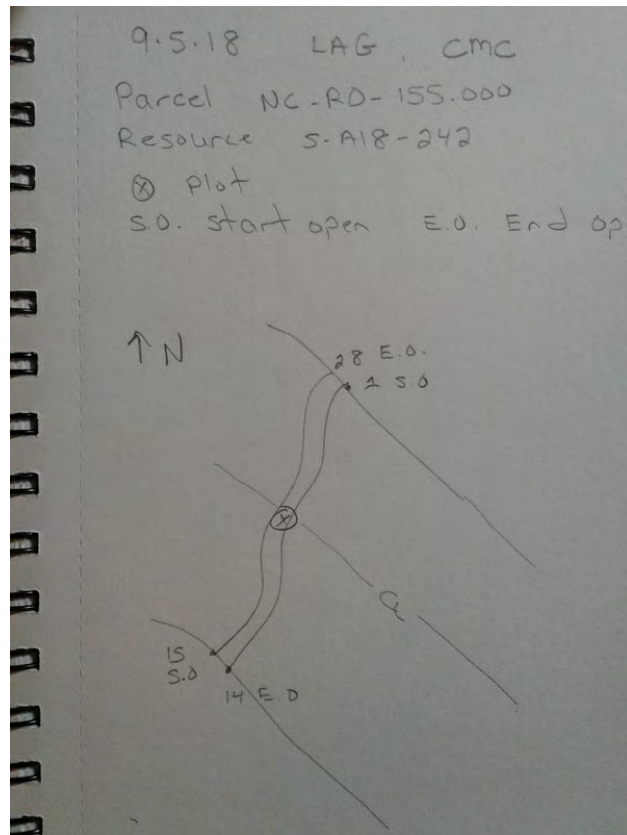 9.5.18 LAG, CMC
Parcel NC-RO-155.000
Resource S-A18-242
⊗ Plot
S.O. start open E.O. End Op
↑ N
28 E.O.
1 S.O
℄
15
S.O
14 E.O